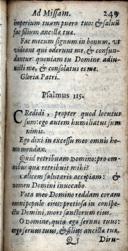 Ad Missam. 249
imperium tuum puero tuo: & salvũ
fac filium ancillæ tuæ.
Fac mecum signum in bonum, ut
videant qui oderunt me, & confun-
dantur: quoniam tu Domine adju-
visti me, & consolatus es me.
Gloria Patri.
Psalmus 115.
CRedidi, propter quod locutus
sum: ego autem humiliatus sum
nimis.
Ego dixi in excessu meo: omnis ho-
mo mendax.
Quid retribuam Domino: pro om-
nibus quæ retribuit mihi?
Calicem salutaris accipiam: &
nomen Domini invocabo.
Vota mea Domino reddam coram
omni populo ejus: pretiosa in conspe-
ctu Domini, mors sanctorum ejus.
O Domine, quia ego servus tuus:
ego servus tuus, & filius ancillæ tuæ.
Diru